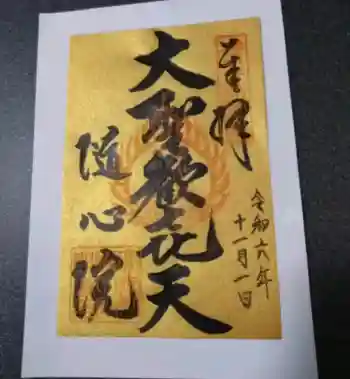 奉拝
令和六年
十一月一日
大聖歓喜天
随心院